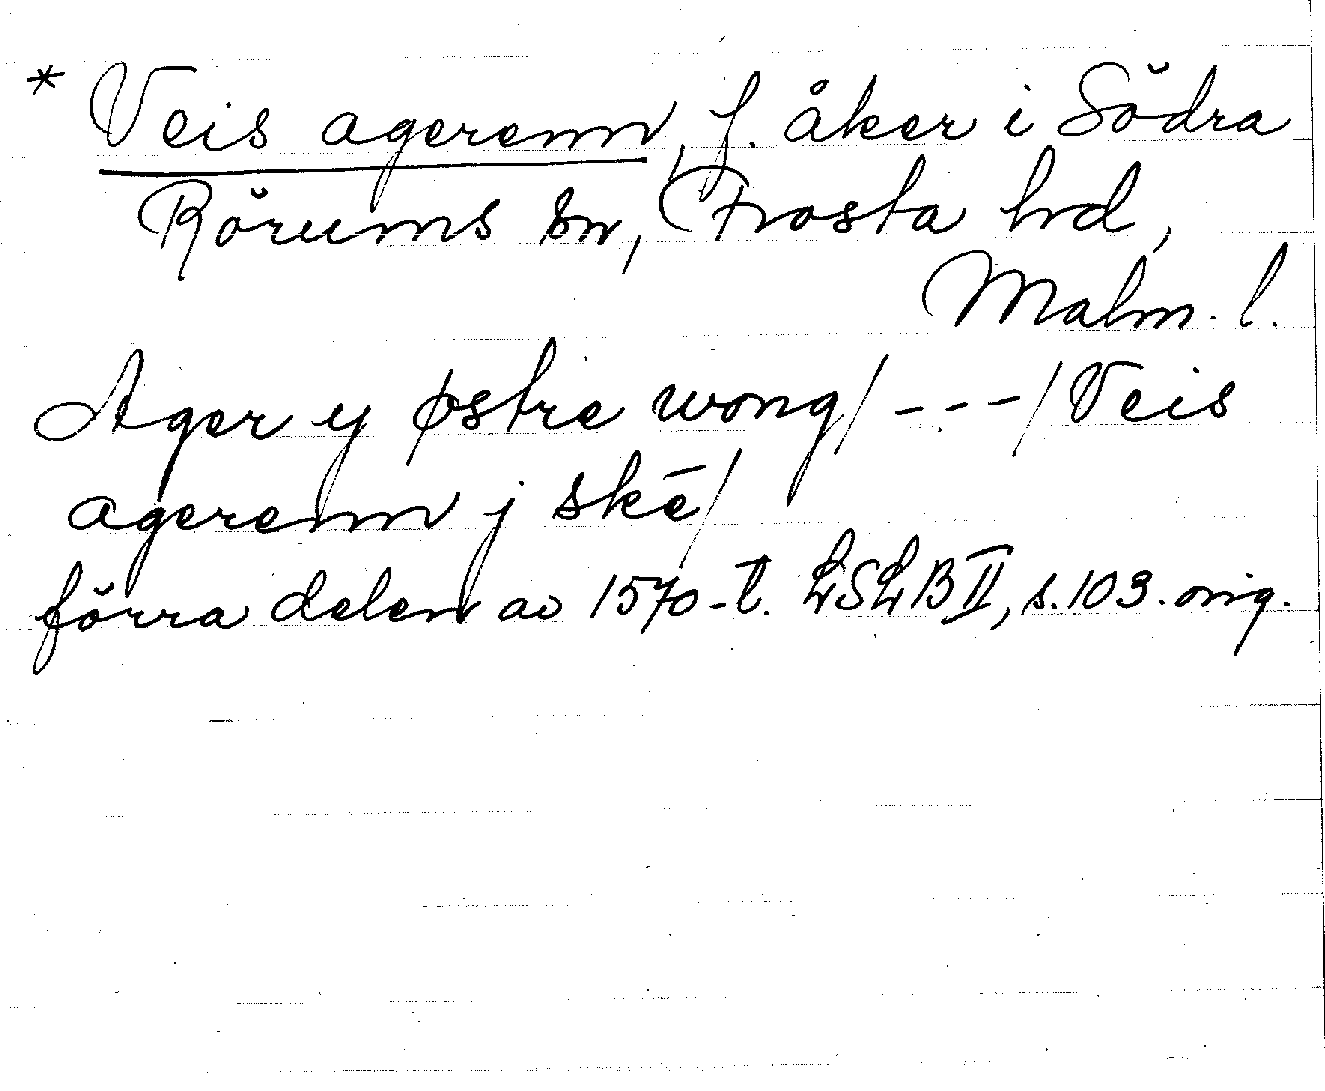 * Veis agerenn, f. åker i Södra
Rörums sn, Frosta hd,
Malm. l.
Ager y østre wong/---/Veis
agerenn j skē/
förra delen av 1570-t. LSLB II, s. 103. orig.